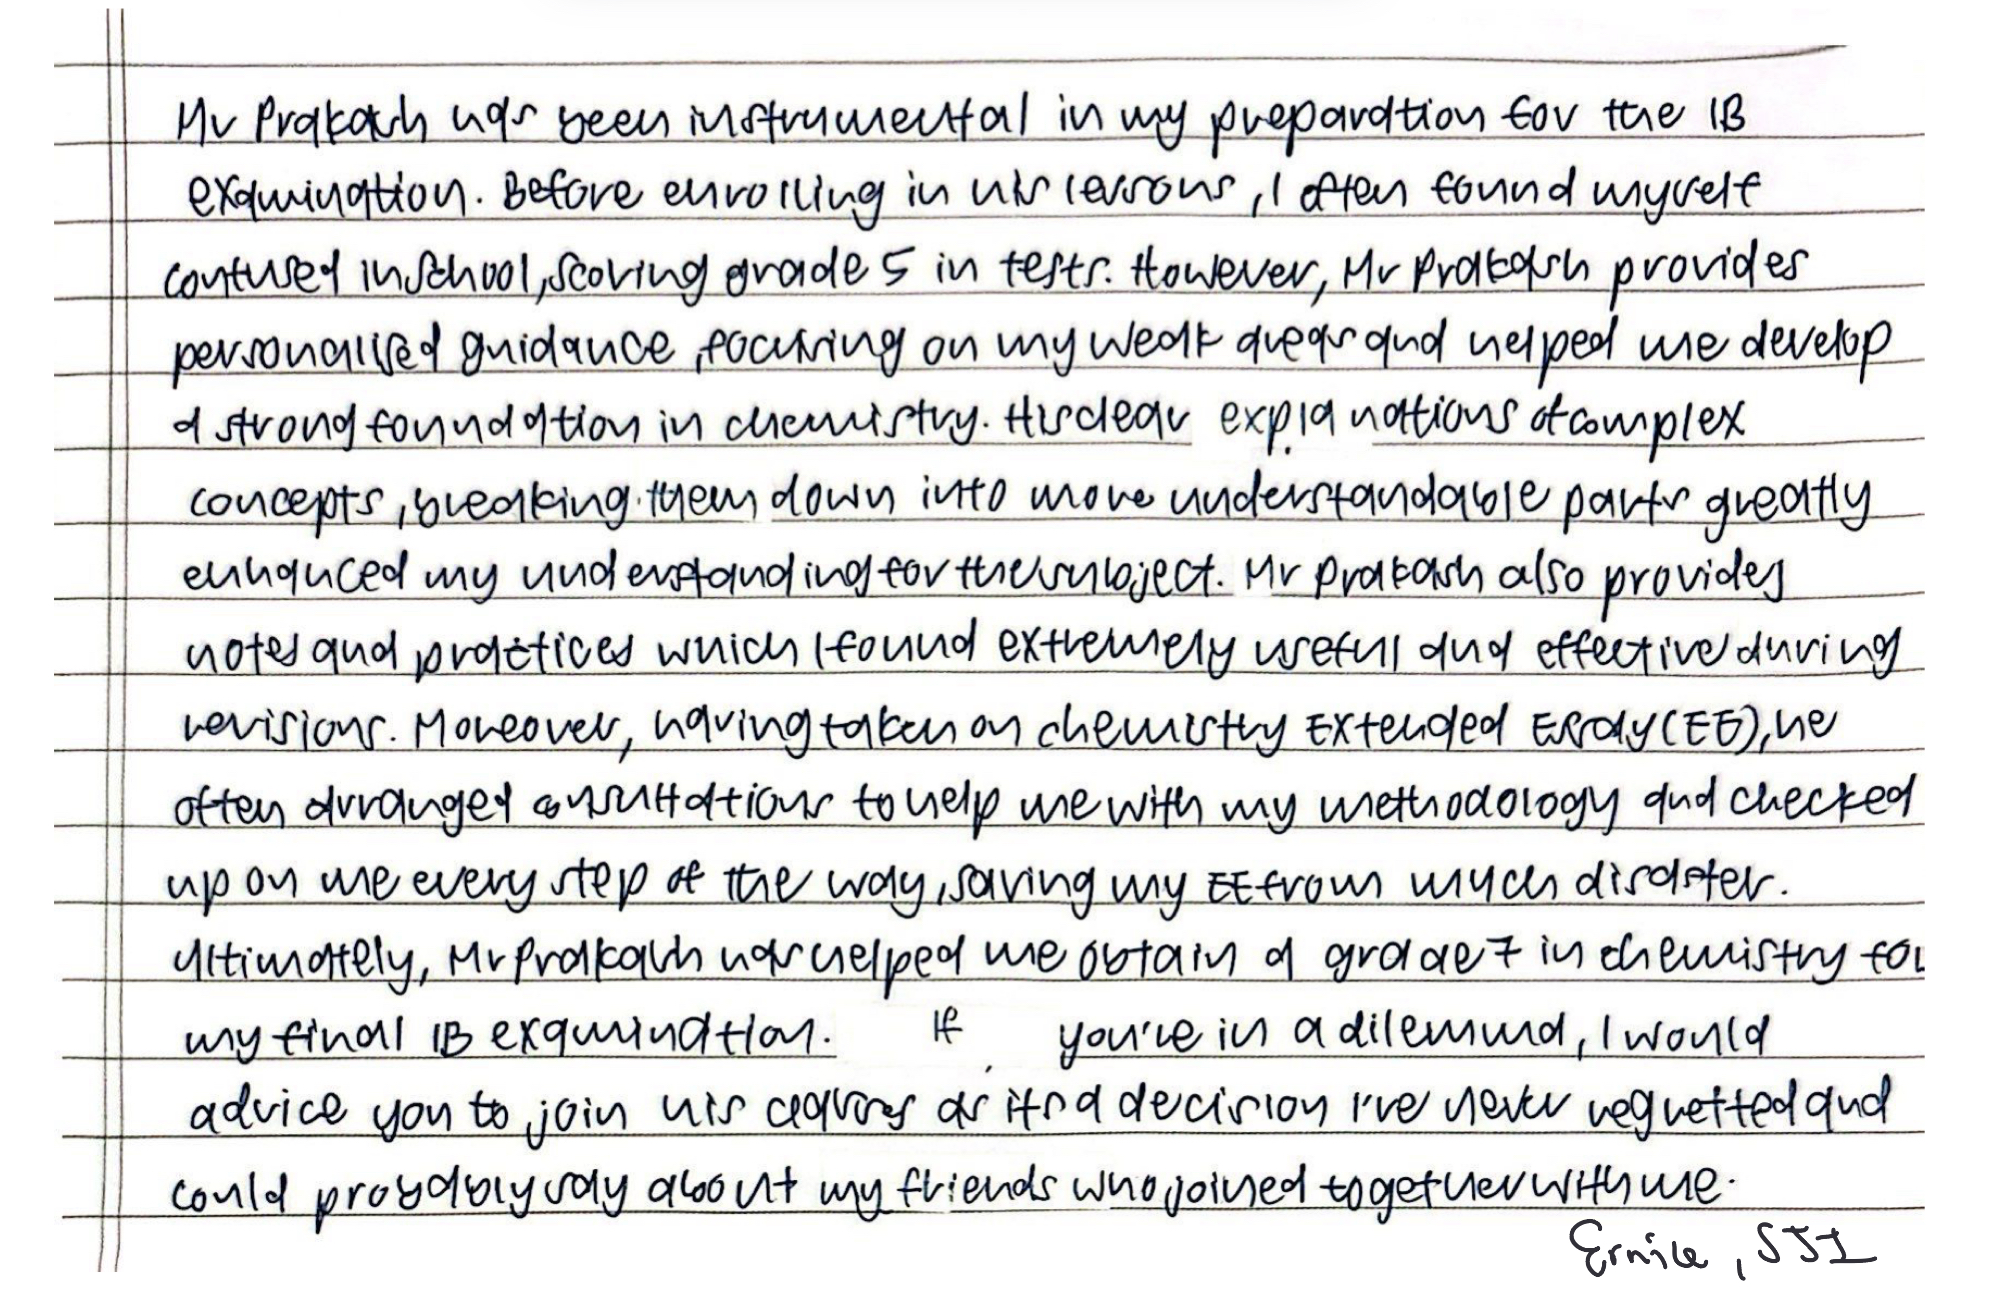 Mr Prakash has been instrumental in my preparation for the IB
examination. Before enrolling in his lessons, I often found myself
confused in school, scoring grade 5 in tests. However, Mr Prakash provides
personalised guidance, focusing on my weak areas and helped me develop
a strong foundation in chemistry. His clear explanations of complex
concepts, breaking them down into more understandable parts greatly
enhanced my understanding for the subject. Mr Prakash also provides
notes and practices which I found extremely useful and effective during
revisions. Moreover, having taken on chemistry Extended Essay (EE), he
often arranged consultations to help me with my methodology and checked
up on me every step of the way, saving my EE from much disaster.
Ultimately, Mr Prakash has helped me obtain a grade 7 in chemistry for
my final IB examination. If you're in a dilemma, I would
advice you to join his classes as its a decision I've never regretted and
could probably say about my friends who joined together with me.
Ernice, SJI